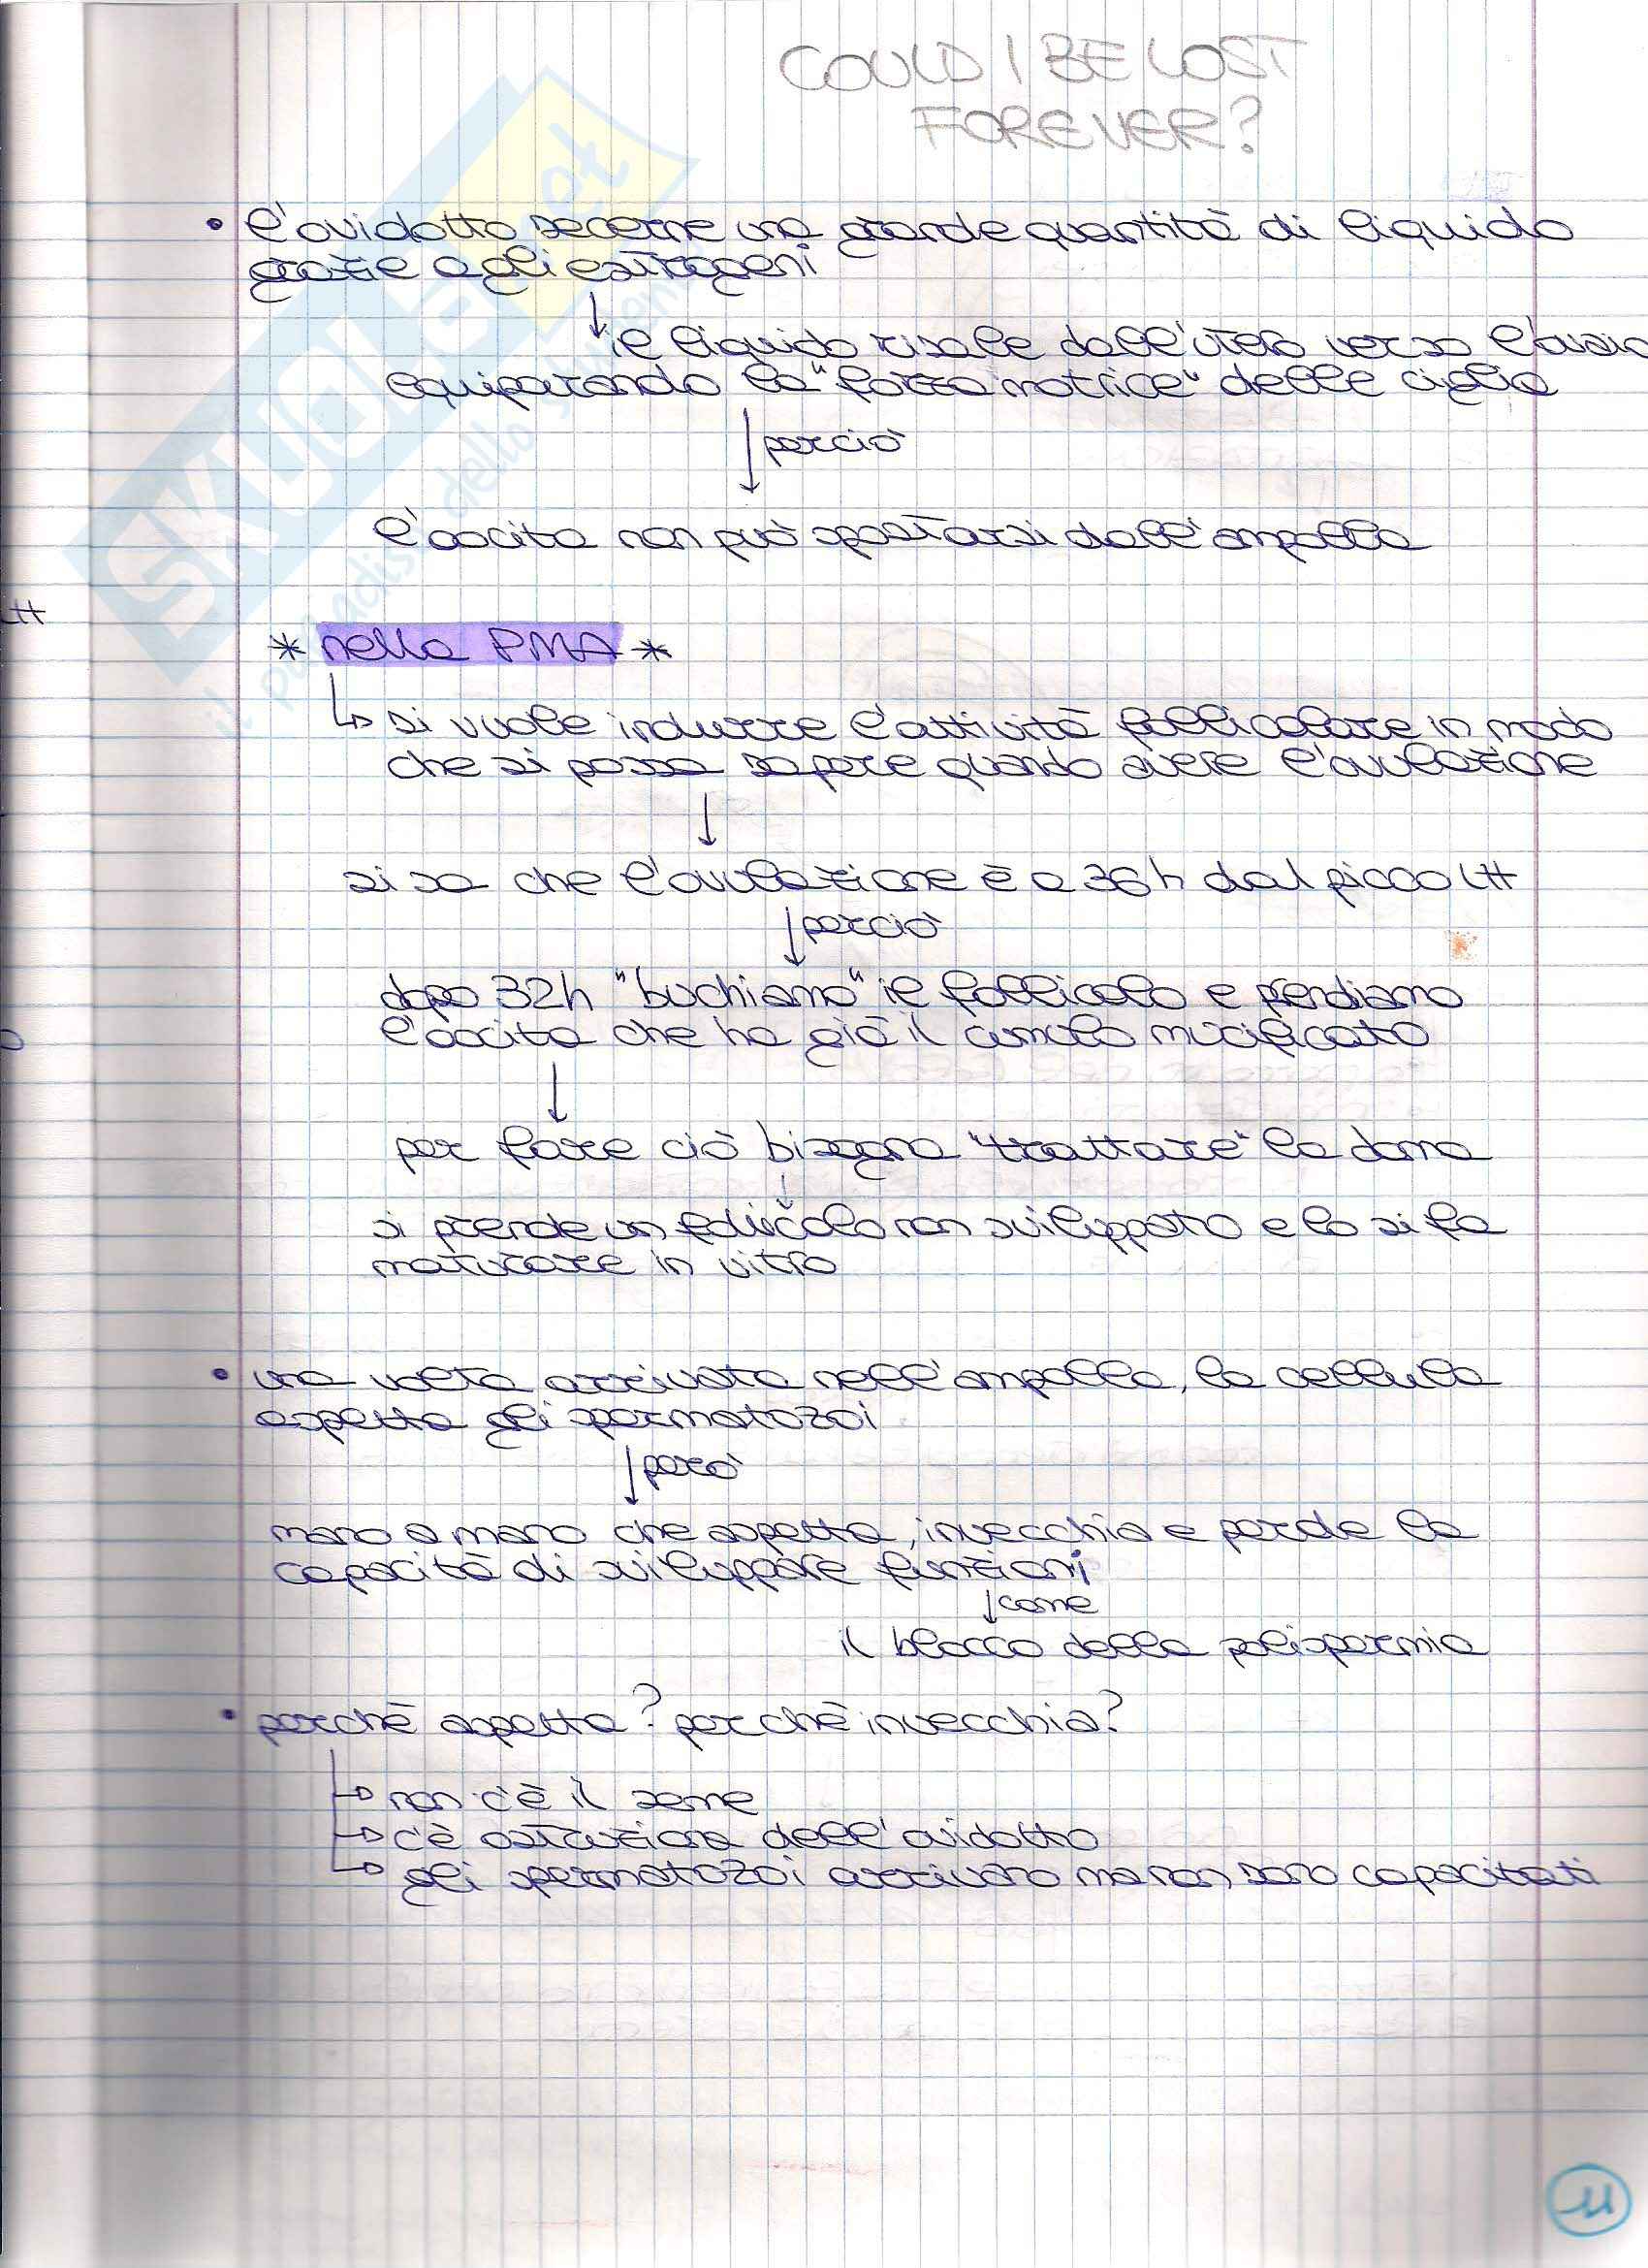 COULD I BE LOST
FOREVER?
• l'ovidotto secerne una grande quantità di liquido
grazie agli estrogeni
↓ il liquido risale dall'utero verso l'ovaio
equiparando la "forza motrice" delle ciglia
↓ perciò
l'oocita non può spostarsi dall'ampolla
LH
* nella PMA *
↳ si vuole indurre l'attività follicolare in modo
che si possa sapere quando avere l'ovulazione
↓
si sa che l'ovulazione è a 36h dal picco LH
↓ perciò
dopo 32h "buchiamo" il follicolo e prendiamo
l'oocita che ha già il cumulo mucificato
↓
per fare ciò bisogna "trattare" la donna
↓
si prende un follicolo non sviluppato e lo si fa
maturare in vitro
• una volta arrivata nell'ampolla, la cellula
aspetta gli spermatozoi
↓ però
mano a mano che aspetta, invecchia e perde la
capacità di sviluppare funzioni
↓ come
il blocco della polispermia
• perchè aspetta? perchè invecchia?
↳ non c'è il seme
↳ c'è ostruzione dell'ovidotto
↳ gli spermatozoi arrivano ma non sono capacitati
SKUOLA.net
il paradiso dello studente
11